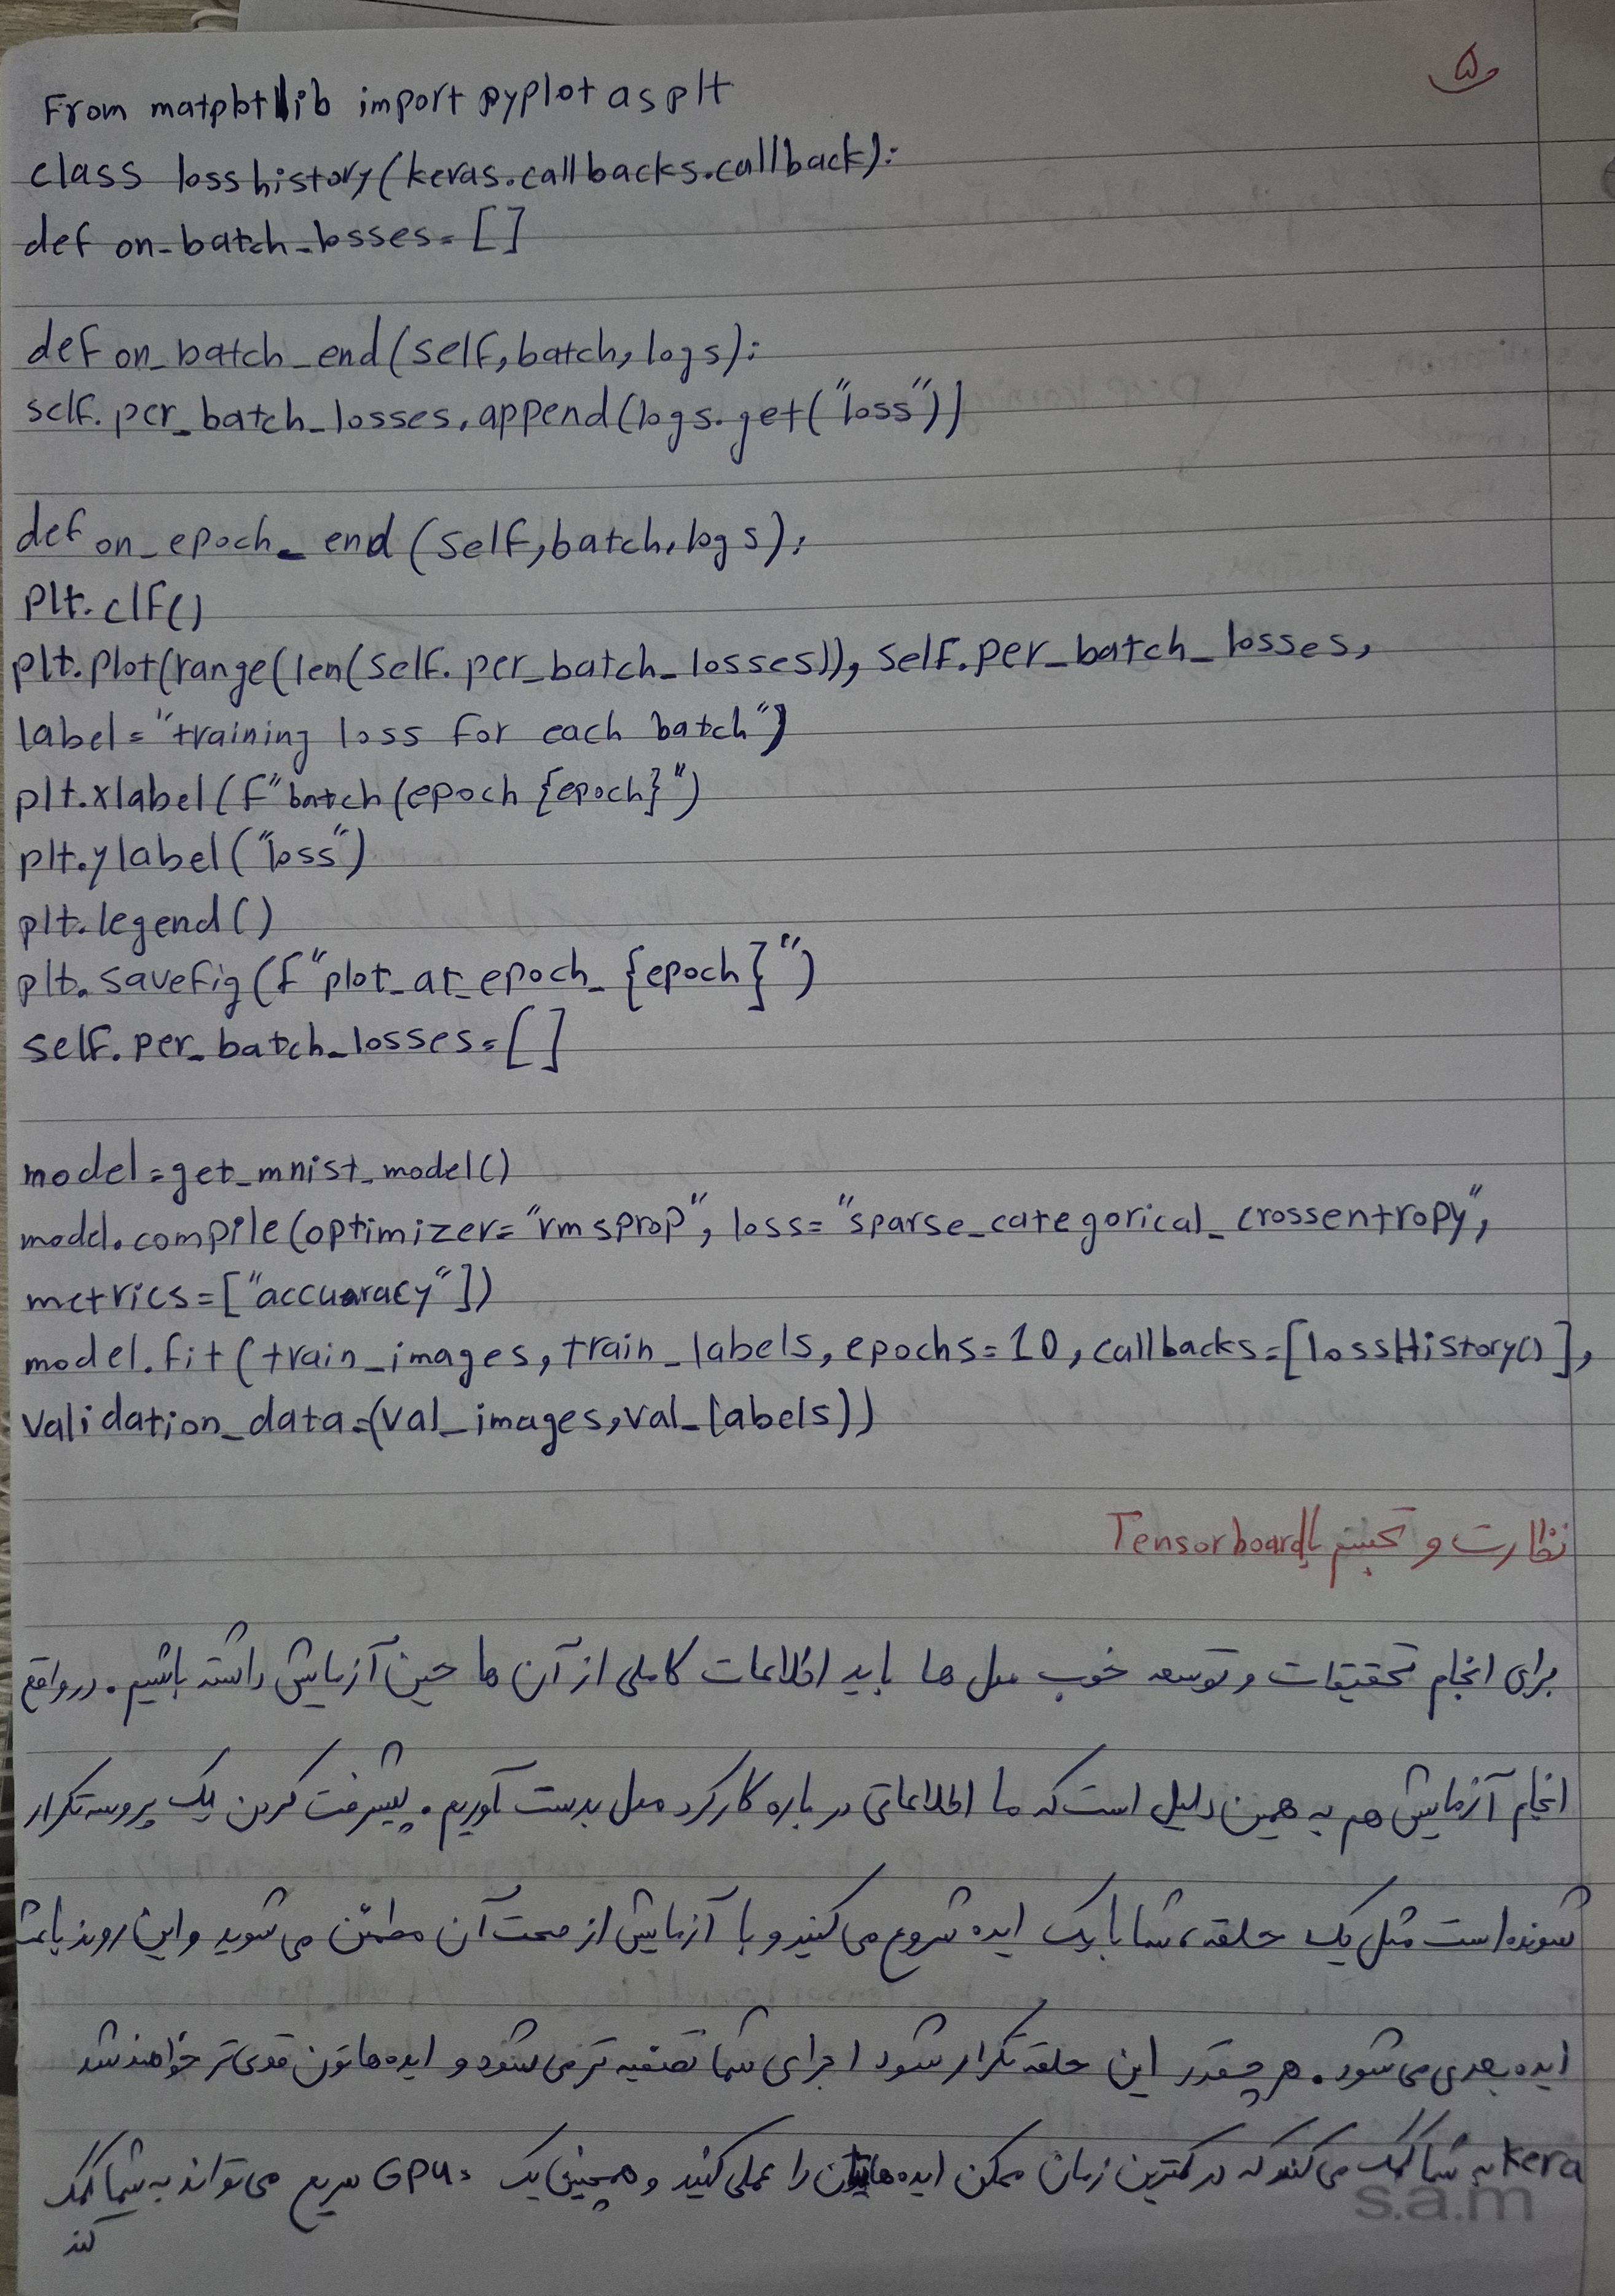 ۵
From matplotlib import pyplot as plt
class losshistory(keras.callbacks.callback):
def on_batch_losses=[]
def on_batch_end(self,batch,logs):
self.per_batch_losses.append(logs.get("loss"))
def on_epoch_end(self,batch,logs):
plt.clf()
plt.plot(range(len(self.per_batch_losses)), self.per_batch_losses,
label="training loss for each batch")
plt.xlabel(f"batch(epoch {epoch}")
plt.ylabel("loss")
plt.legend()
plt.savefig(f"plot_at_epoch_{epoch}")
self.per_batch_losses=[]
model=get_mnist_model()
model.compile(optimizer="rmsprop", loss="sparse_categorical_crossentropy",
metrics=["accuaracy"])
model.fit(train_images, train_labels, epochs=10, callbacks=[lossHistory()],
validation_data=(val_images,val_labels))
نظارت و تجسم با Tensorboard
برای انجام تحقیقات و توسعه خوب مدل ها باید اطلاعات کاملی از آن ها حین آزمایش داشته باشیم. در واقع
انجام آزمایش هم به همین دلیل است که ما اطلاعاتی درباره کارکرد مدل بدست آوریم. پیشرفت کردن یک پروسه تکرار
شونده است مثل یک حلقه، شما با یک ایده شروع می کنید و با آزمایش از صحت آن مطمئن می شوید و این روند باعث
ایده بعدی می شود. هر چقدر این حلقه تکرار شود اجرای شما تصفیه تر می شود و ایده هاتون قوی تر خواهند شد
kera به شما کمک می کند که در کمترین زمان ممکن ایده هایتان را عملی کنید و همچنین یک GPU سریع می تواند به شما کمک
کند
s.a.m